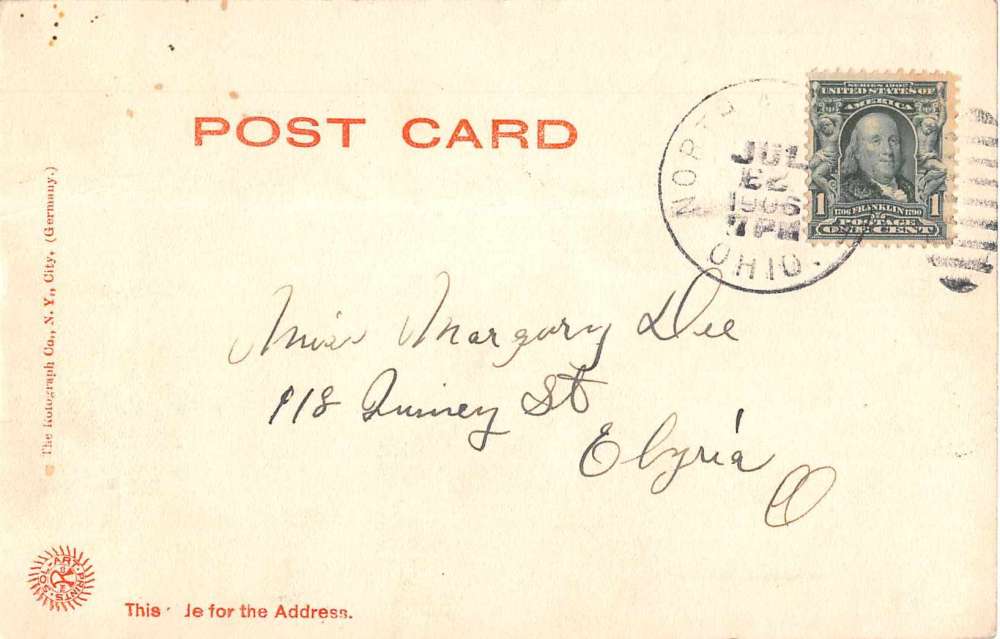 POST CARD
SERIES 1902
UNITED STATES OF
AMERICA
1 1706 FRANKLIN 1790 1
POSTAGE
ONE CENT
JUL
1906
7 PM
OHIO.
The Rotograph Co., N. Y., City. (Germany.)
Miss Margory Dee
118 St
Elyria
O
SOL-ART PRINTS
This for the Address.